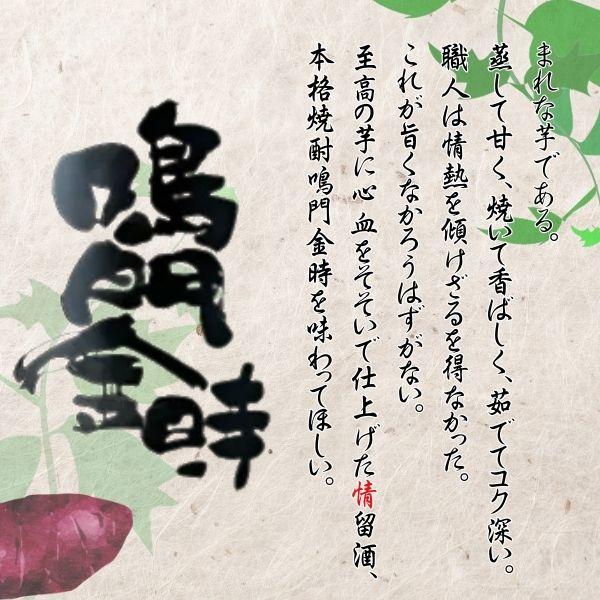 まれな芋である。
蒸して甘く、焼いて香ばしく、茹でてコク深い。
職人は情熱を傾けざるを得なかった。
これが旨くなかろうはずがない。
至高の芋に心血をそそいで仕上げた情留酒、
本格焼酎鳴門金時を味わってほしい。
鳴門金時